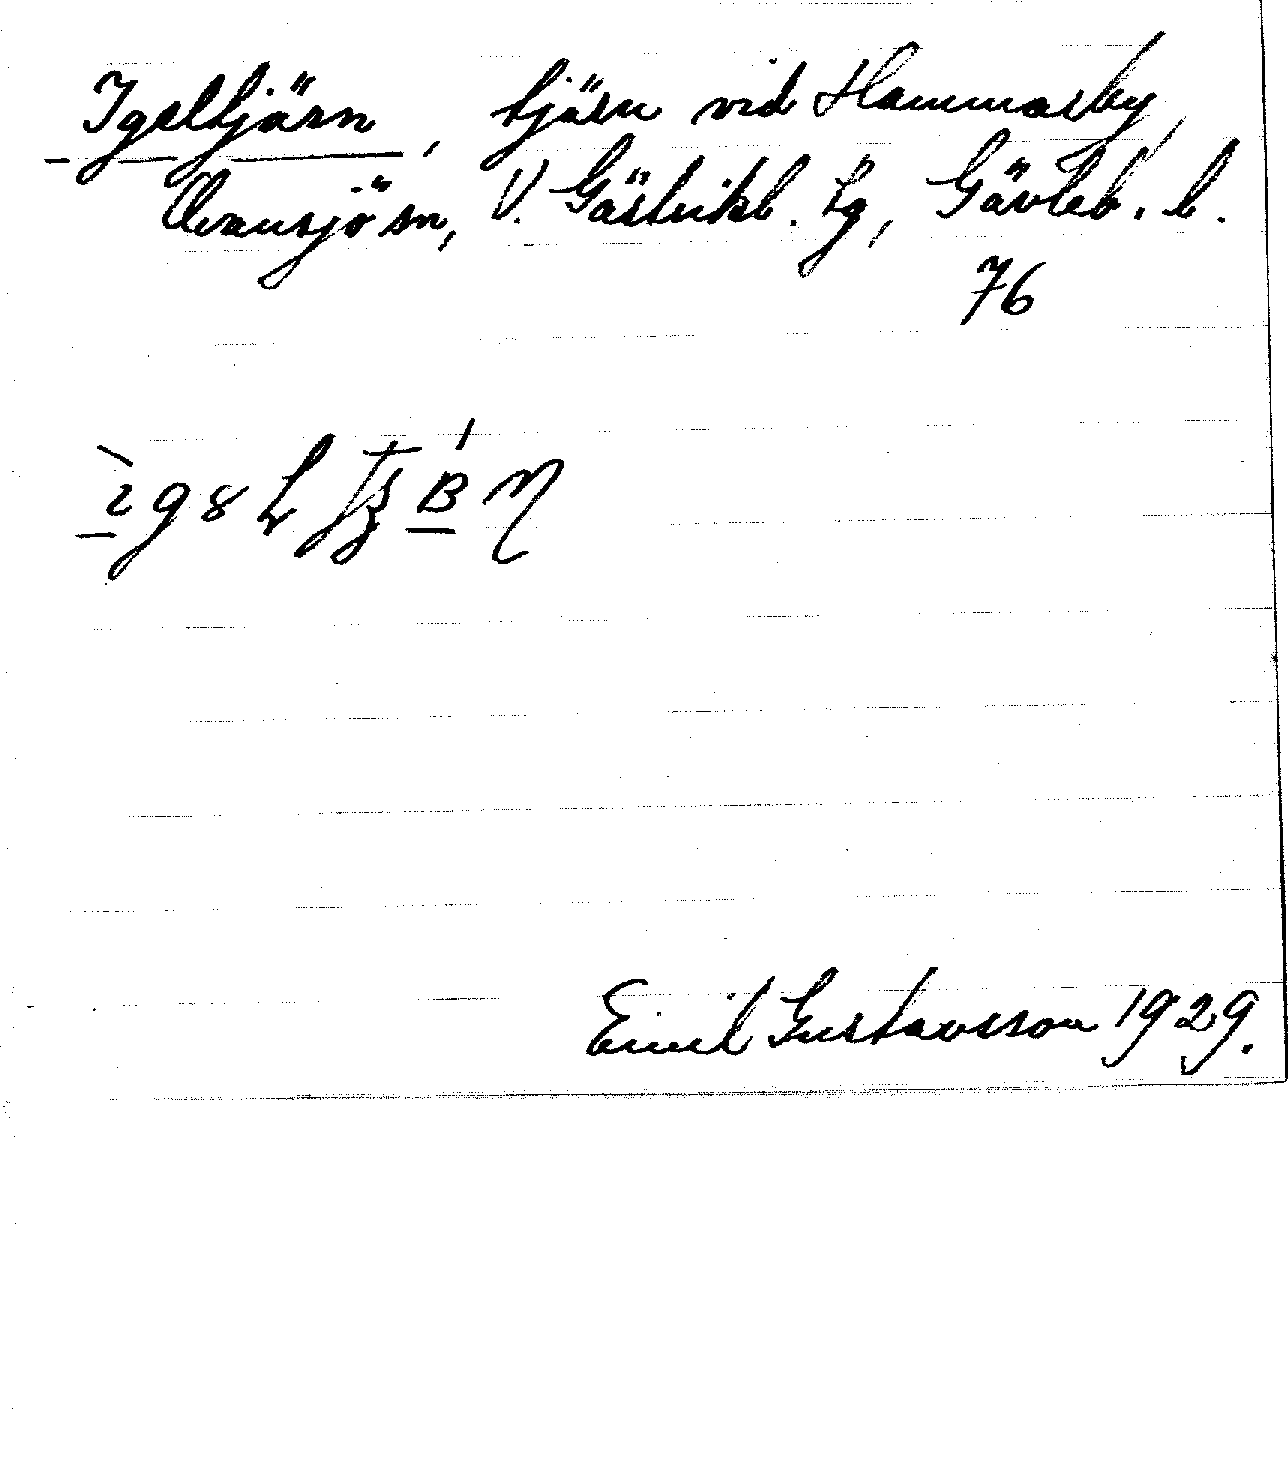 Igeltjärn, tjärn vid Hammarby,
Ovansjö sn, V. Gästrikl. tg, Gävleb. l.
76
Emil Gustavsson 1929.